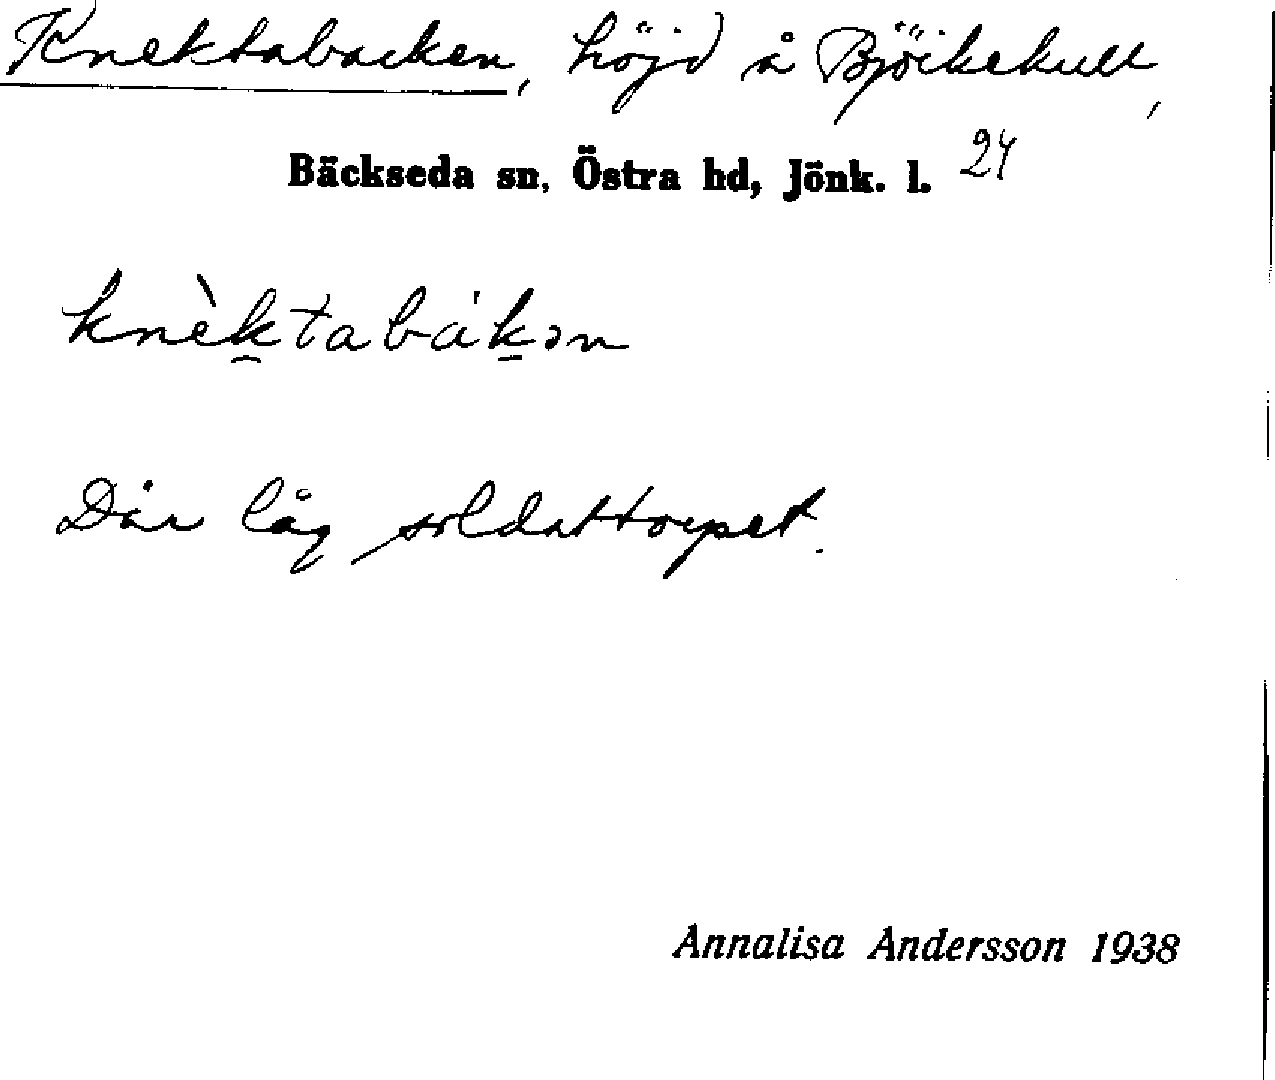 Knektabacken, höjd å Björkekull,
Bäckseda sn, Östra hd, Jönk. l. 24
knèk̲tabák̲ən
Där låg soldattorpet.
Annalisa Andersson 1938